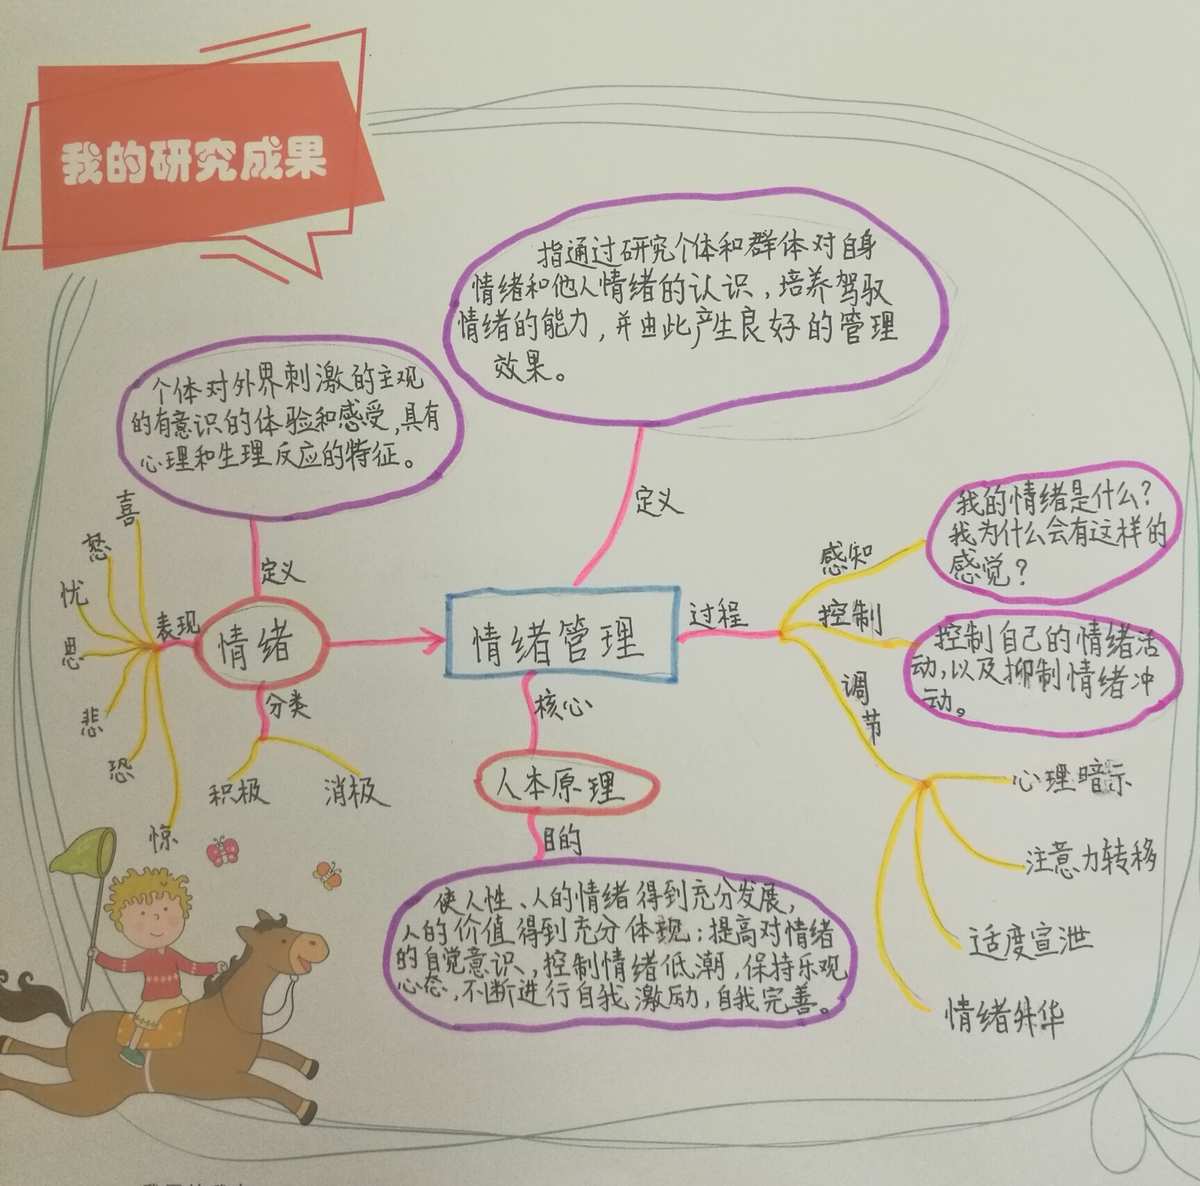 我的研究成果
指通过研究个体和群体对自身
情绪和他人情绪的认识，培养驾驭
情绪的能力，并由此产生良好的管理
效果。
个体对外界刺激的主观
的有意识的体验和感受，具有
心理和生理反应的特征。
定义
定义
喜
怒
忧
思
悲
恐
惊
表现
情绪
分类
积极
消极
情绪管理
核心
人本原理
目的
使人性、人的情绪得到充分发展，
人的价值得到充分体现；提高对情绪
的自觉意识，控制情绪低潮，保持乐观
心态，不断进行自我激励，自我完善。
过程
感知
我的情绪是什么？
我为什么会有这样的
感觉？
控制
控制自己的情绪活
动，以及抑制情绪冲
动。
调
节
心理暗示
注意力转移
适度宣泄
情绪升华